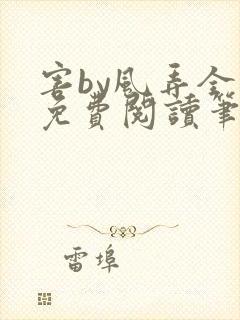 害by風弄全
免費閱讀筆
雷埠